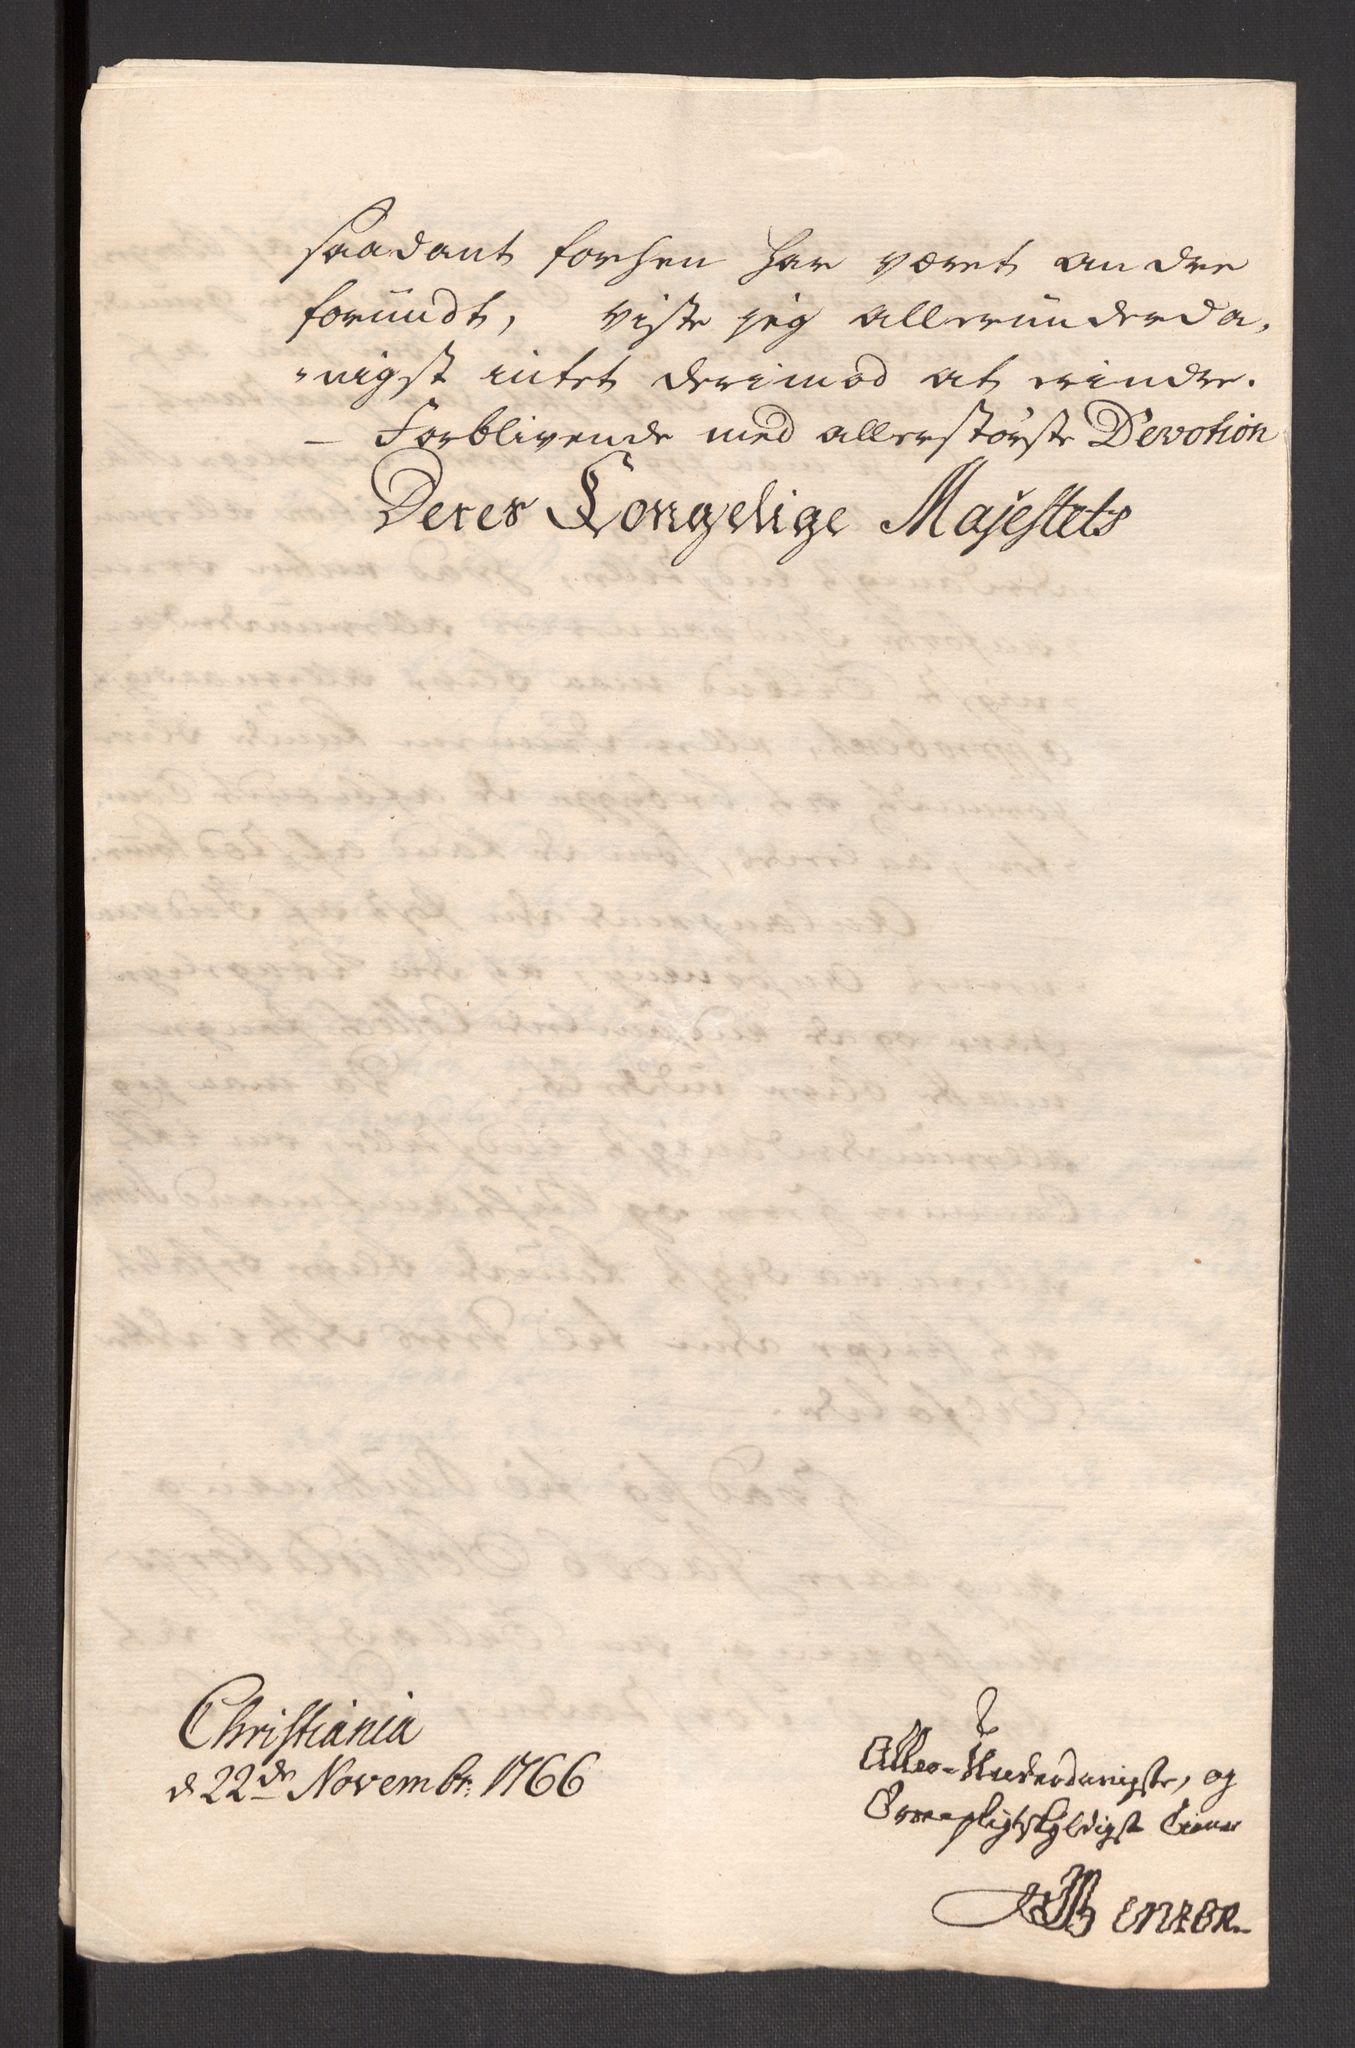 saadant forhen har været andre
forundt, viste jeg alleründerda,
„nigst intet derimod at erindre.
— Forblivende med allerstörste Devotion
Deres Kongelige Majestets
Christiania
d 22de Novembr: 1766
Aller-Underdanigste, og
Troepligtskyldigst Tiener
Benzon